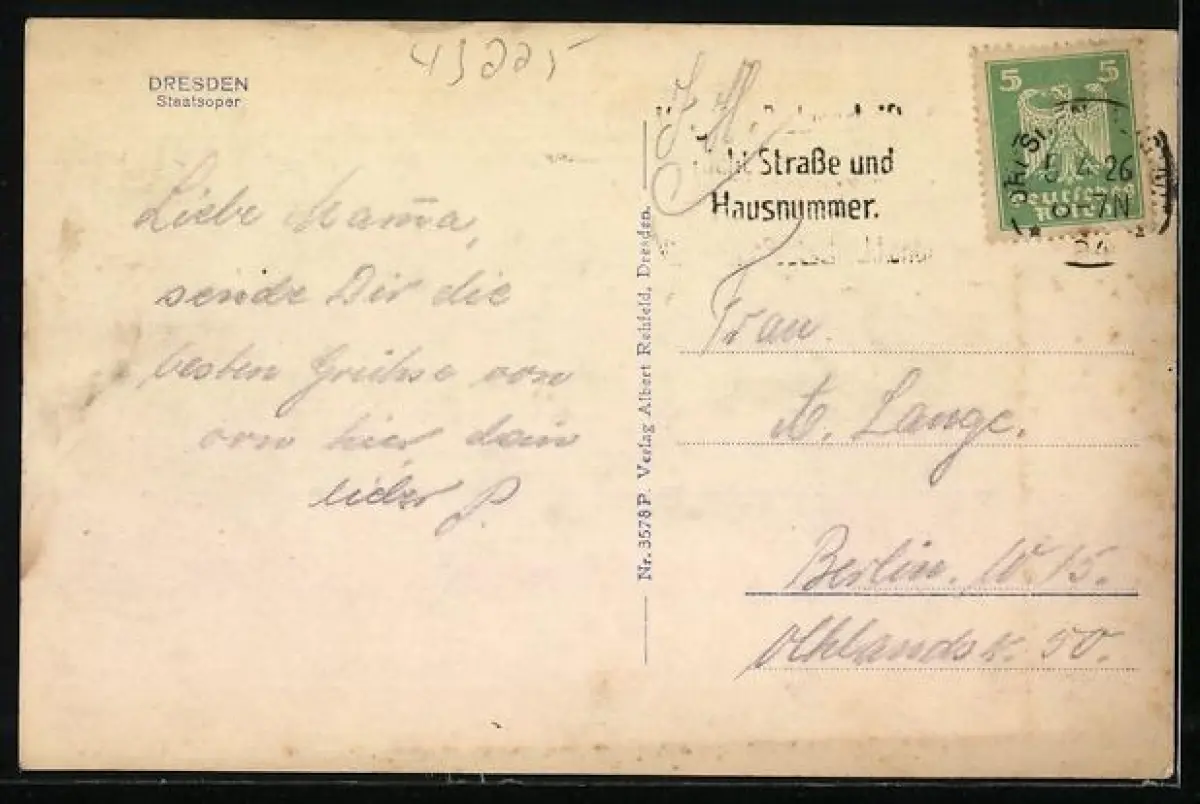 43225
DRESDEN
Staatsoper
Liebe Mama,
sende Dir die
besten Grühse von
orn hier dein
lieber P.
Nr. 3578 P. Verlag Albert Rehfeld, Dresden.
nicht Straße und
Hausnummer.
5 5
5.4.26
6-7N
Deutsches
Reich
24
Frau.
A. Lange.
Berlin. W 15.
50.